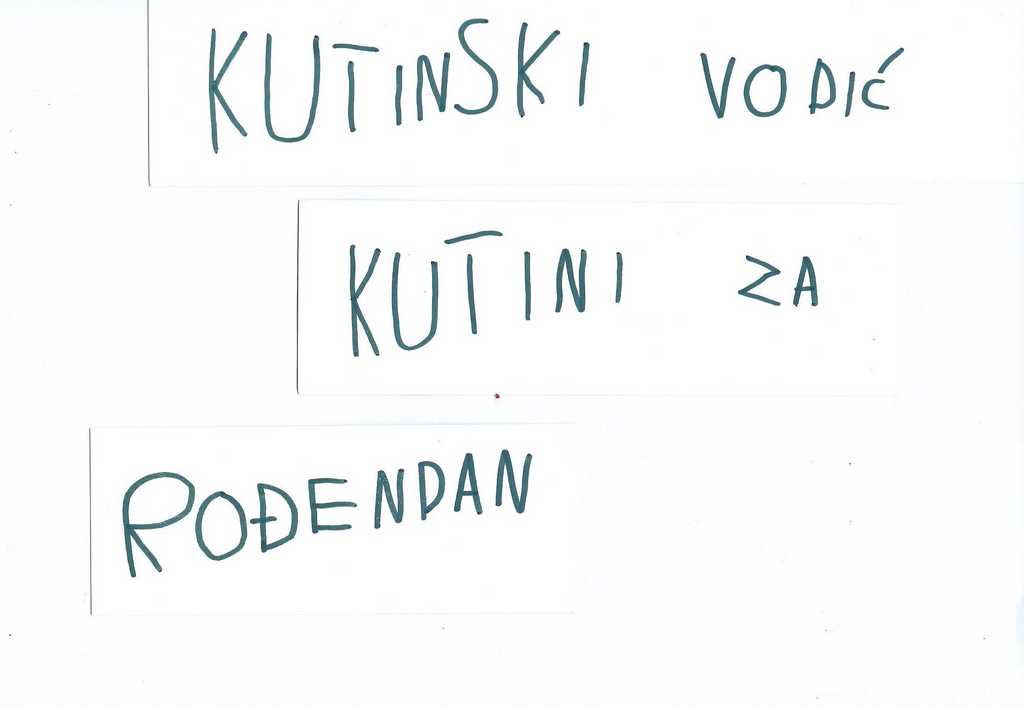 KUTINSKI VODIĆ
KUTINI ZA
ROĐENDAN